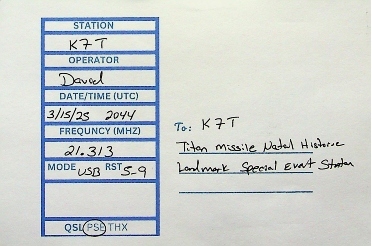 STATION
K7T
OPERATOR
David
DATE/TIME (UTC)
3/15/25 2044
FREQUNCY (MHZ)
21.313
MODE USB RST 5-9
QSL PSE THX
To: K7T
Titan Missile Natal Historic
Landmark Special Event Station